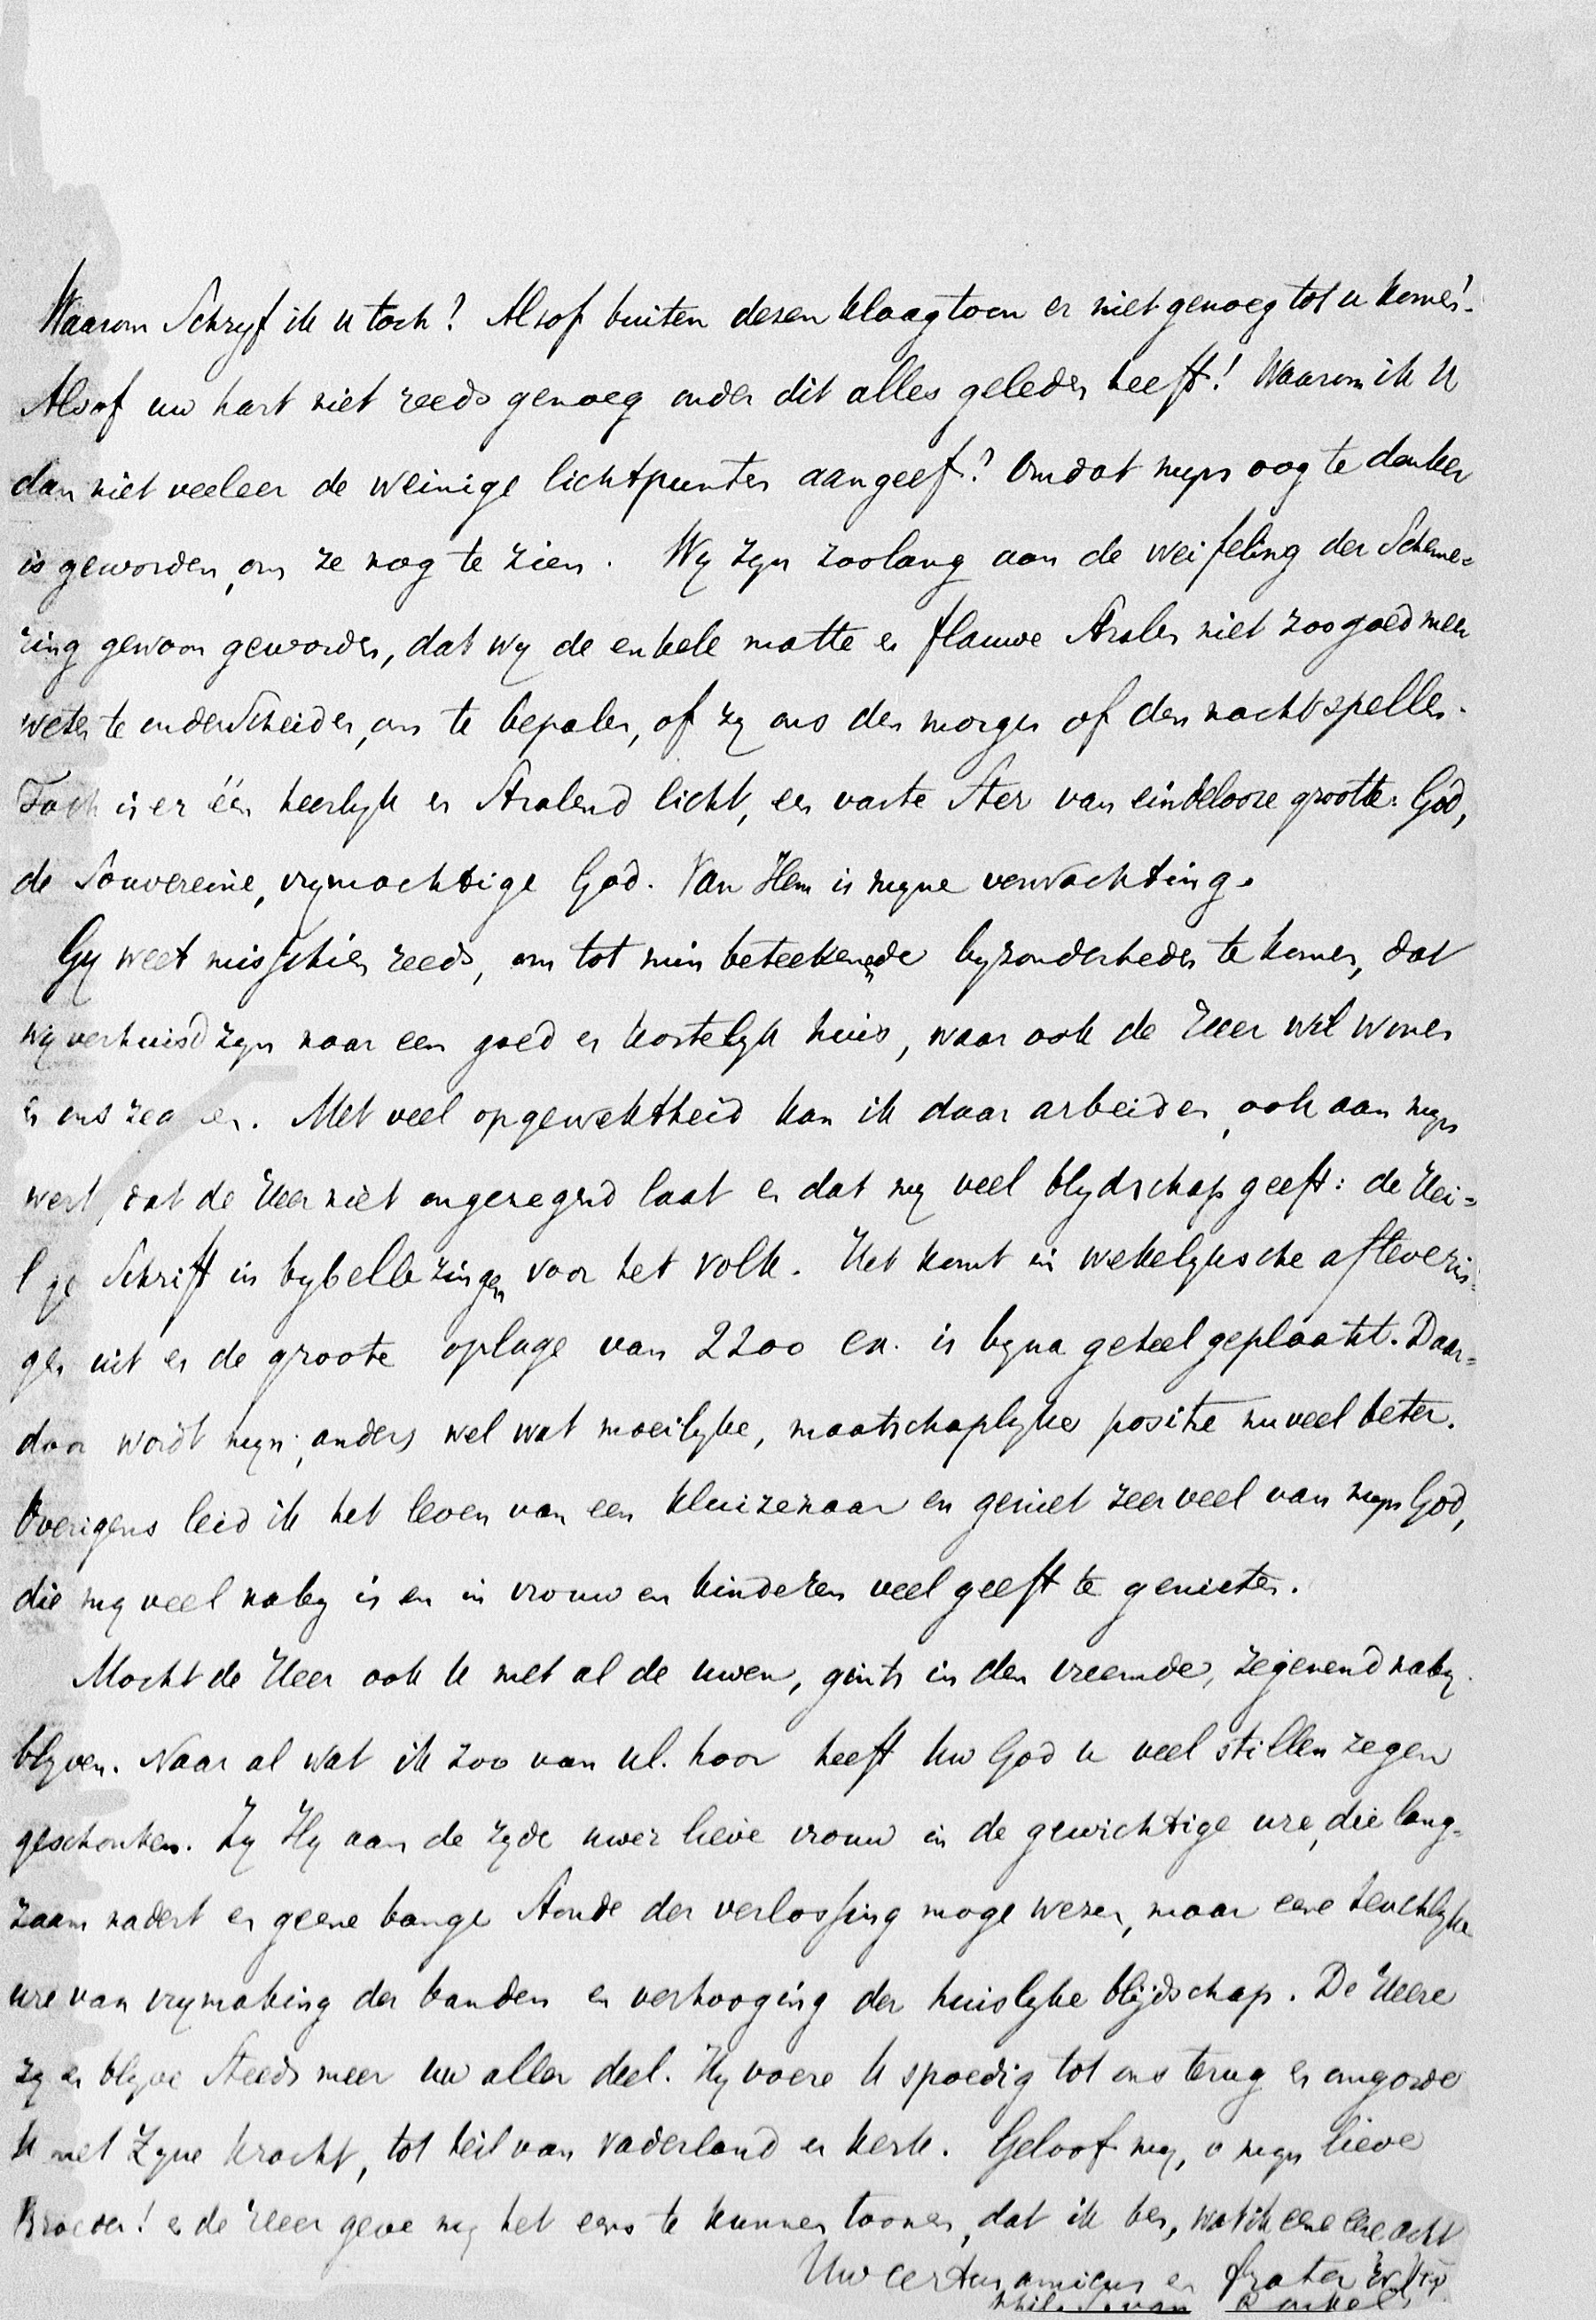 Waarom Schryf ik u toch? Alsof buiten dezen klaagtoon er niet genoeg tot u komen!
Alsof uw hart niet reeds genoeg onder dit alles geleden heeft! Waarom ik U
dan niet veeleer de weinige lichtpunten aangeef? Omdat myn oog te donker
is geworden, om ze nog te zien. Wy zyn zoolang aan de weifeling der Scheme=
ring gewoon geworden, dat wy de enkele matte en flauwe Stralen niet zoo goed meer
weten te onderscheiden, om te bepalen, of zy ons den morgen of den nacht spellen.
Toch is er één heerlyk en Stralend licht, een vaste Ster van eindelooze grootte: God,
de Souvereine, vrymachtige God. Van Hem is myne verwachting.
Gy weet misschien reeds, om tot min beteekenende byzonderheden te komen, dat
wy verhuisd zyn naar een goed en kostelyk huis, waar ook de Heer wil wonen
en ons zegenen. Met veel opgewektheid kan ik daar arbeiden, ook aan myn
werk, dat de Heer niet ongezegend laat en dat my veel blydschap geeft: de Hei=
lige Schrift in bybellezingen voor het volk. Het komt in wekelyksche afleverin=
gen uit en de groote oplage van 2200 ex. is byna geheel geplaatst. Daar=
door wordt myn, anders wel wat moeilyke, maatschaplyke positie nu veel beter.
Overigens leid ik het leven van een kluizenaar en geniet zeer veel van myn God,
die my veel naby is en in vrouw en kinderen veel geeft te genieten.
Mocht de Heer ook U met al de uwen, gints in den vreemde, zegenend naby
blyven. Naar al wat ik zoo van Ul. hoor heeft Uw God u veel stillen zegen
geschonken. Zy Hy aan de zyde uwer lieve vrouw in de gewichtige ure, die lang=
zaam nadert en geene bange Stonde der verlossing moge wezen, maar eene heuchlyke
ure van vrymaking der banden en verhooging der huislyke blijdschap. De Heere
zy en blyve Steeds meer uw aller deel. Hy voere U spoedig tot ons terug en omgorde
U met Zyne kracht, tot heil van vaderland en kerk. Geloof my, o myn lieve
Broeder! en de Heer geve my het eens te kunnen toonen, dat ik ben, wat ik eene eere acht
Uw certus amicus en frater
Phil. S. van Ronkel